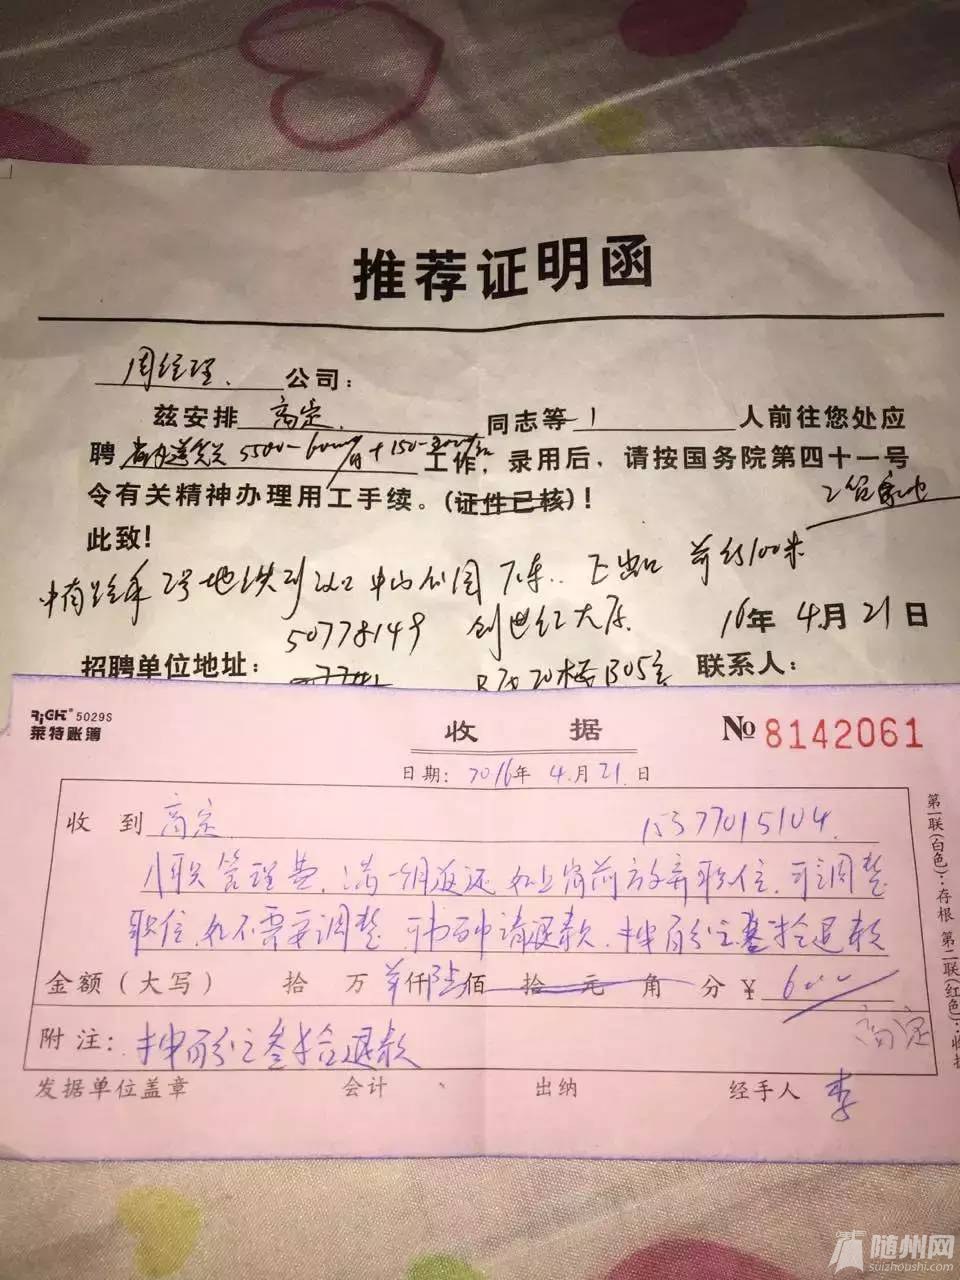 推荐证明函
周经理. 公司：
兹安排 高定 同志等 1 人前往您处应
聘 省内送货员 5500-6000/月+150-300 工作，录用后，请按国务院第四十一号
令有关精神办理用工手续。(证件已核)！
此致！
2号地铁到 中山公园下车.. E出口 前行100米
50778149 创世纪大厦. 16年 4月 21日
招聘单位地址： B座20楼B05室 联系人：
RiGHT® 5029S
莱特账簿
收 据
№ 8142061
日期：2016年 4月 21日
收 到 高定 15377015104
入职管理费，满一月返还 如上岗前放弃职位，可调整
职位，如不需要调整，可书面申请退款，按百分之叁拾退款
金额（大写） 拾 万 零仟陆佰 拾 元 角 分 ¥ 600
高定
附注： 按百分之叁拾退款
发据单位盖章 会计 出纳 经手人 李
第一联(白色)：存根 第二联(红色)：收据
随州网
suizhoushi.com